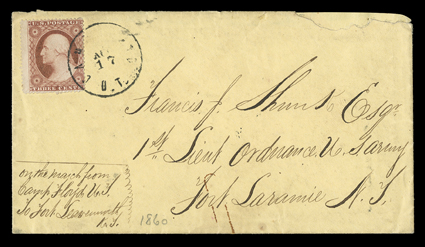 U.S. POSTAGE
THREE CENTS
17
U.T.
Francis J. Shunk Esqr
1st Lieut Ordnance U.S. Army
Fort Laramie N.T.
on the march from
Camp Floyd U.T.
to Fort Leavenworth
K.T.
1860